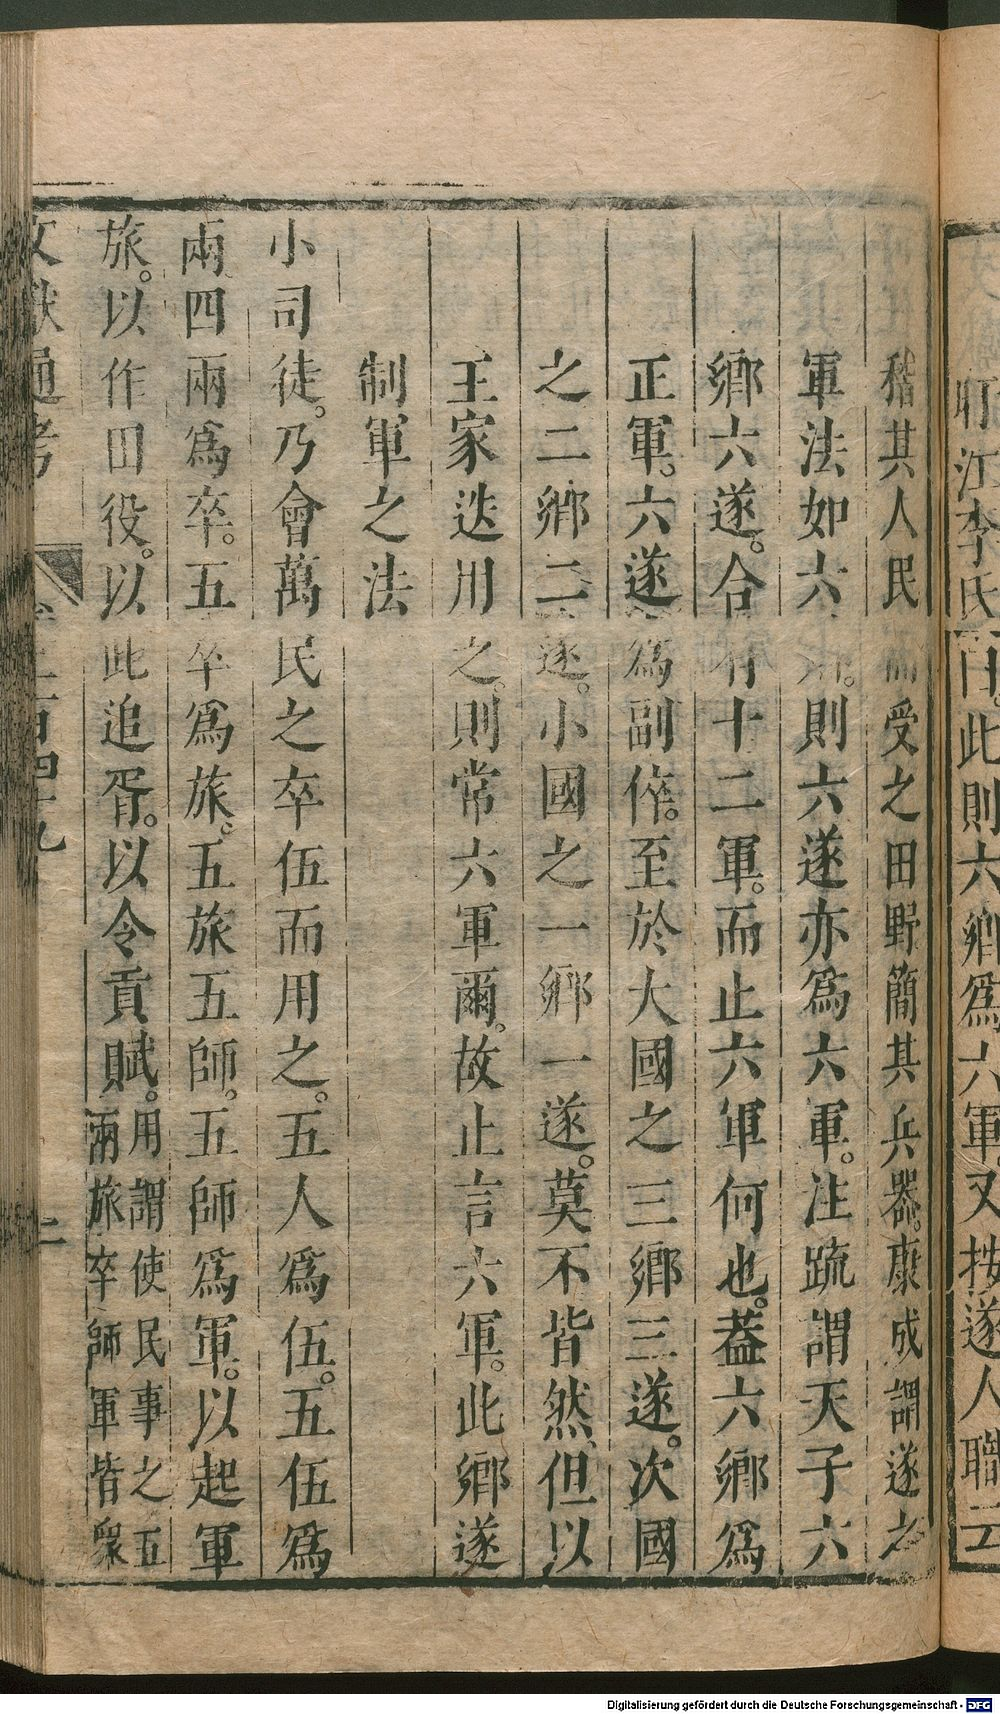 盱江李氏曰。此則六鄉爲六軍。又按遂人職云
稽其人民而受之田野簡其兵器。康成謂遂之
軍法如六鄉。則六遂亦爲六軍。注疏謂天子六
鄉六遂。合有十二軍。而止六軍何也。葢六鄉爲
正軍。六遂爲副倅。至於大國之三鄉三遂。次國
之二鄉二遂。小國之一鄉一遂。莫不皆然、但以
王家迭用之。則常六軍爾。故止言六軍。此鄉遂
制軍之法
小司徒。乃會萬民之卒伍而用之。五人爲伍。五伍爲
兩四兩爲卒。五卒爲旅。五旅五師。五師爲軍。以起軍
旅。以作田役。以此追胥。以令貢賦。用謂使民事之五
兩旅卒師軍皆衆
文獻通考
百四十九
二
Digitalisierung gefördert durch die Deutsche Forschungsgemeinschaft - DFG